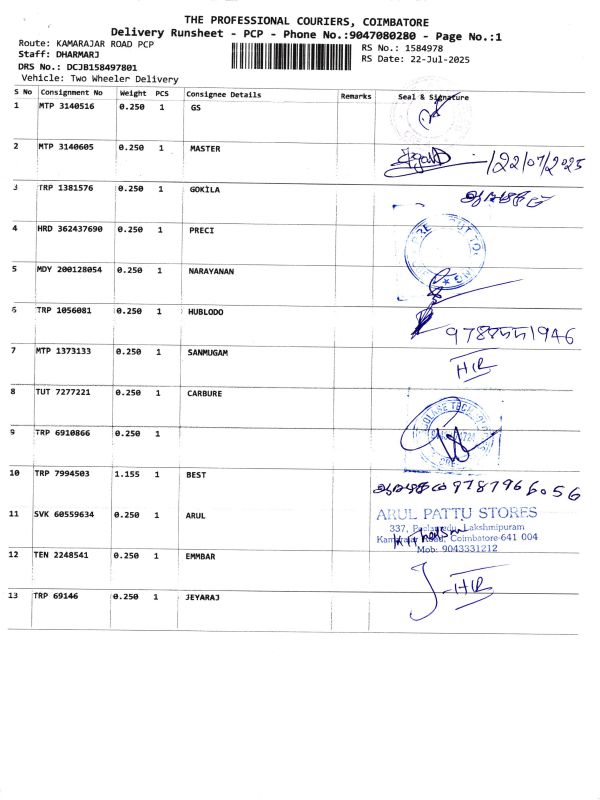 THE PROFESSIONAL COURIERS, COIMBATORE
Delivery Runsheet - PCP - Phone No.:9047080280 - Page No.:1
Route: KAMARAJAR ROAD PCP
RS No.: 1584978
Staff: DHARMARJ
RS Date: 22-Jul-2025
DRS No.: DCJB158497801
Vehicle: Two Wheeler Delivery
S No Consignment No Weight PCS Consignee Details Remarks Seal & Signature
1 MTP 3140516 0.250 1 GS
2 MTP 3140605 0.250 1 MASTER 22/07/2025
3 TRP 1381576 0.250 1 GOKILA
4 HRD 362437690 0.250 1 PRECI
5 MDY 200128054 0.250 1 NARAYANAN
6 TRP 1056081 0.250 1 HUBLODO
7 MTP 1373133 0.250 1 SANMUGAM
8 TUT 7277221 0.250 1 CARBURE
9 TRP 6910866 0.250 1
10 TRP 7994503 1.155 1 BEST 9787966056
11 SVK 60559634 0.250 1 ARUL ARUL PATTU STORES
337, Lakshmipuram
Road, Coimbatore-641 004
Mob: 9043331212
12 TEN 2248541 0.250 1 EMMBAR
13 TRP 69146 0.250 1 JEYARAJ